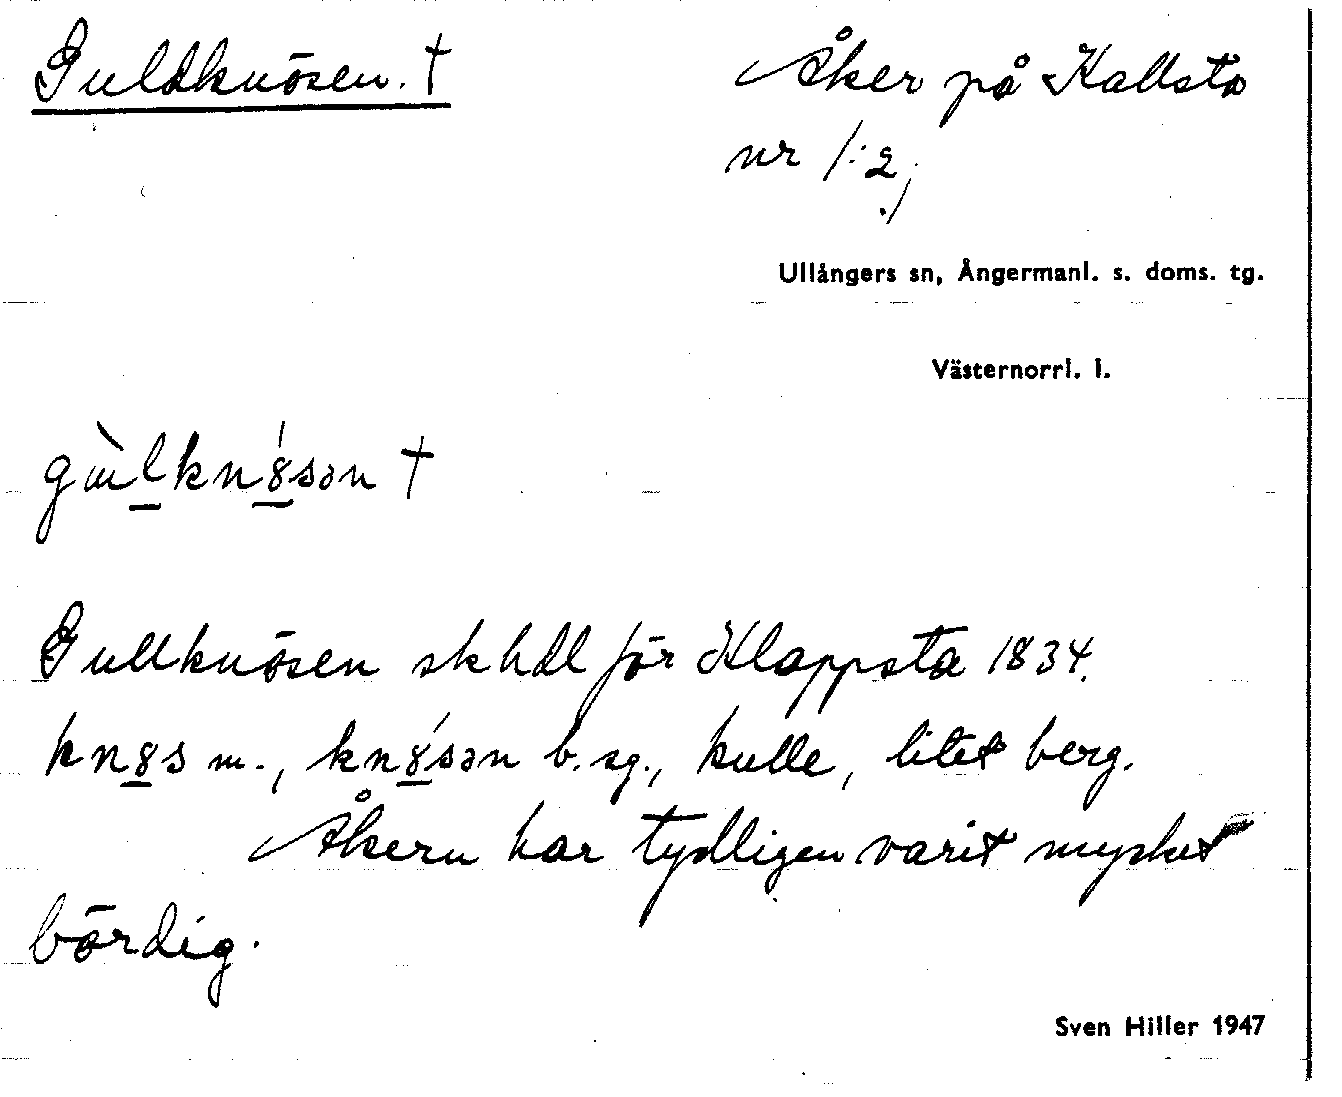 Guldknösen. †
Åker på Kallsta
nr 1:2;
Ullångers sn, Ångermanl. s. doms. tg.
Västernorrl. l.
gɯ̀lkn8́sən †
Gullknösen sk hdl för Klappsta 1834.
kn8s m., kn8́sən b. sg., kulle, litet berg.
Åkern har tydligen varit mycket
bördig.
Sven Hiller 1947